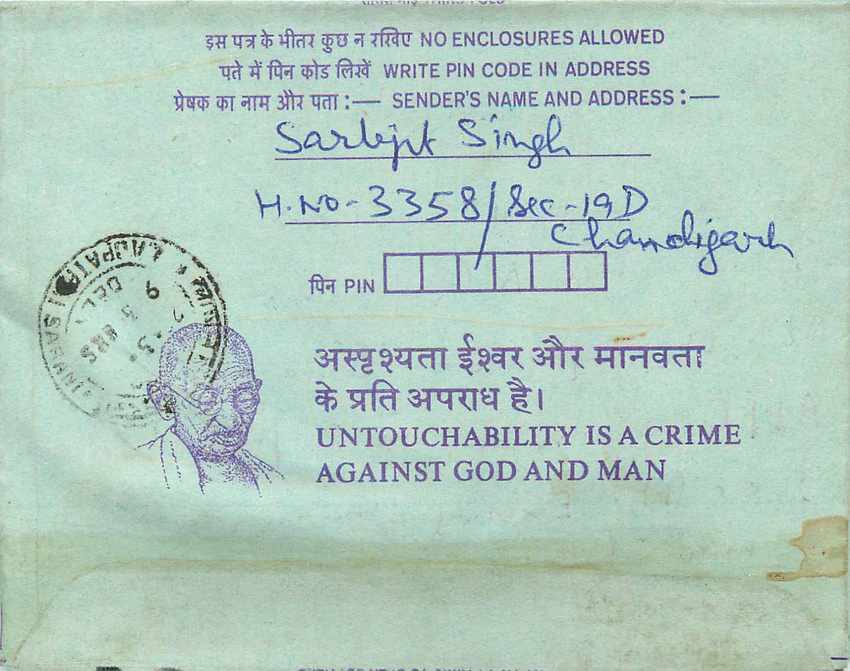 इस पत्र के भीतर कुछ न रखिए NO ENCLOSURES ALLOWED
पते में पिन कोड लिखें WRITE PIN CODE IN ADDRESS
प्रेषक का नाम और पता :— SENDER'S NAME AND ADDRESS :—
Sarbjit Singh
H.No-3358/Sec-19D
Chandigarh
पिन PIN
LAJPAT
SARANI
DEL
HRS
अस्पृश्यता ईश्वर और मानवता
के प्रति अपराध है।
UNTOUCHABILITY IS A CRIME
AGAINST GOD AND MAN